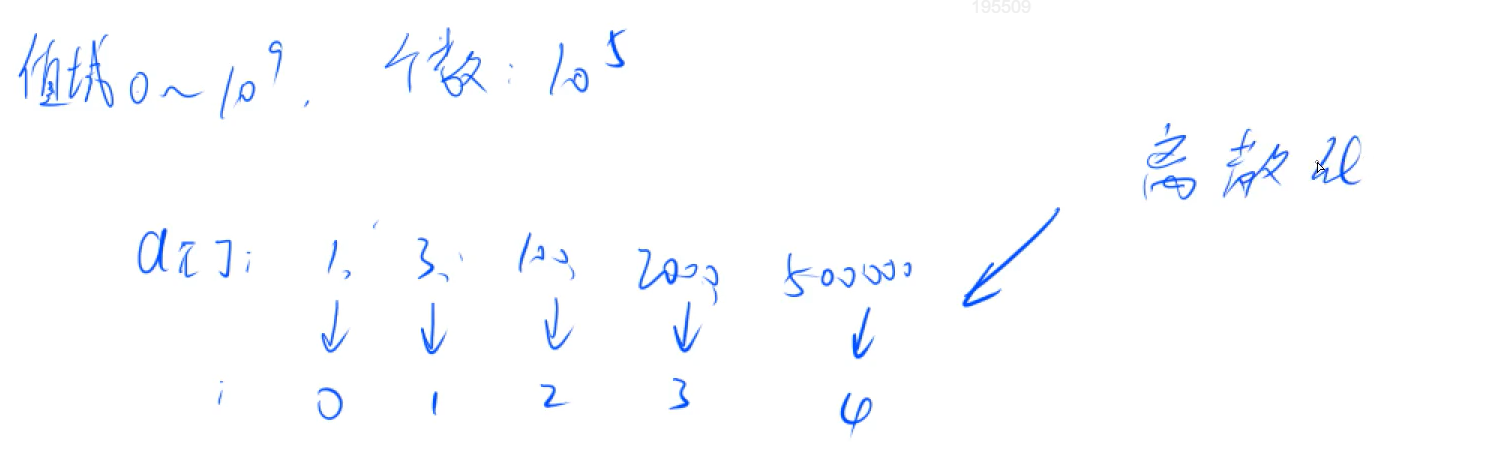 195509
值域0~10⁹. 个数:10⁵
离散化
a[]: 1, 3, 100, 2000, 500000
↓ ↓ ↓ ↓ ↓
i 0 1 2 3 4